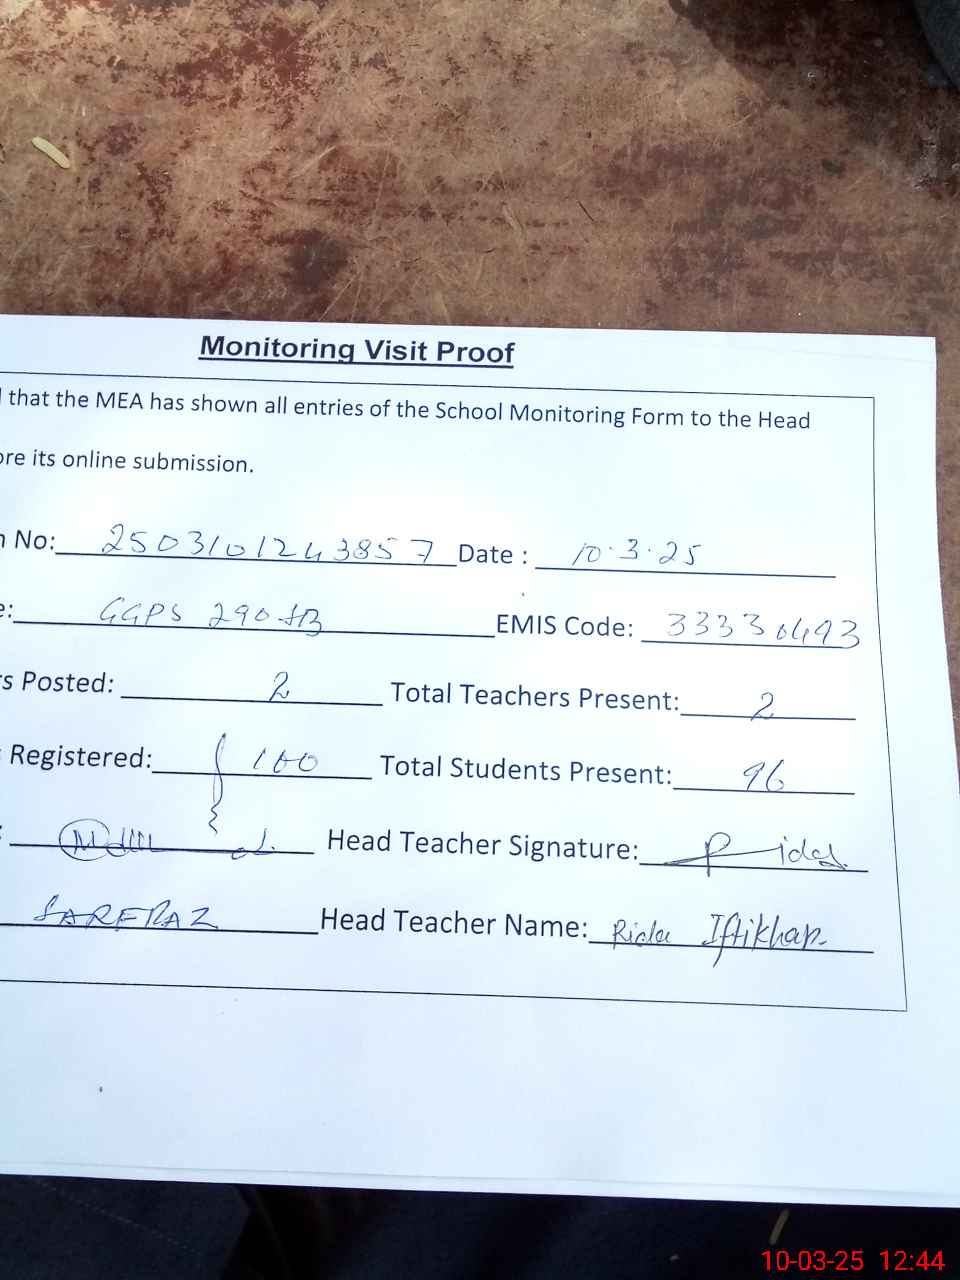 Monitoring Visit Proof
that the MEA has shown all entries of the School Monitoring Form to the Head
ore its online submission.
n No: 2503101243857 Date : 10.3.25
e: GGPS 290 JB EMIS Code: 33330493
rs Posted: 2 Total Teachers Present: 2
Registered: 100 Total Students Present: 96
Head Teacher Signature: Rida
SARFRAZ Head Teacher Name: Rida Iftikhar
10-03-25 12:44